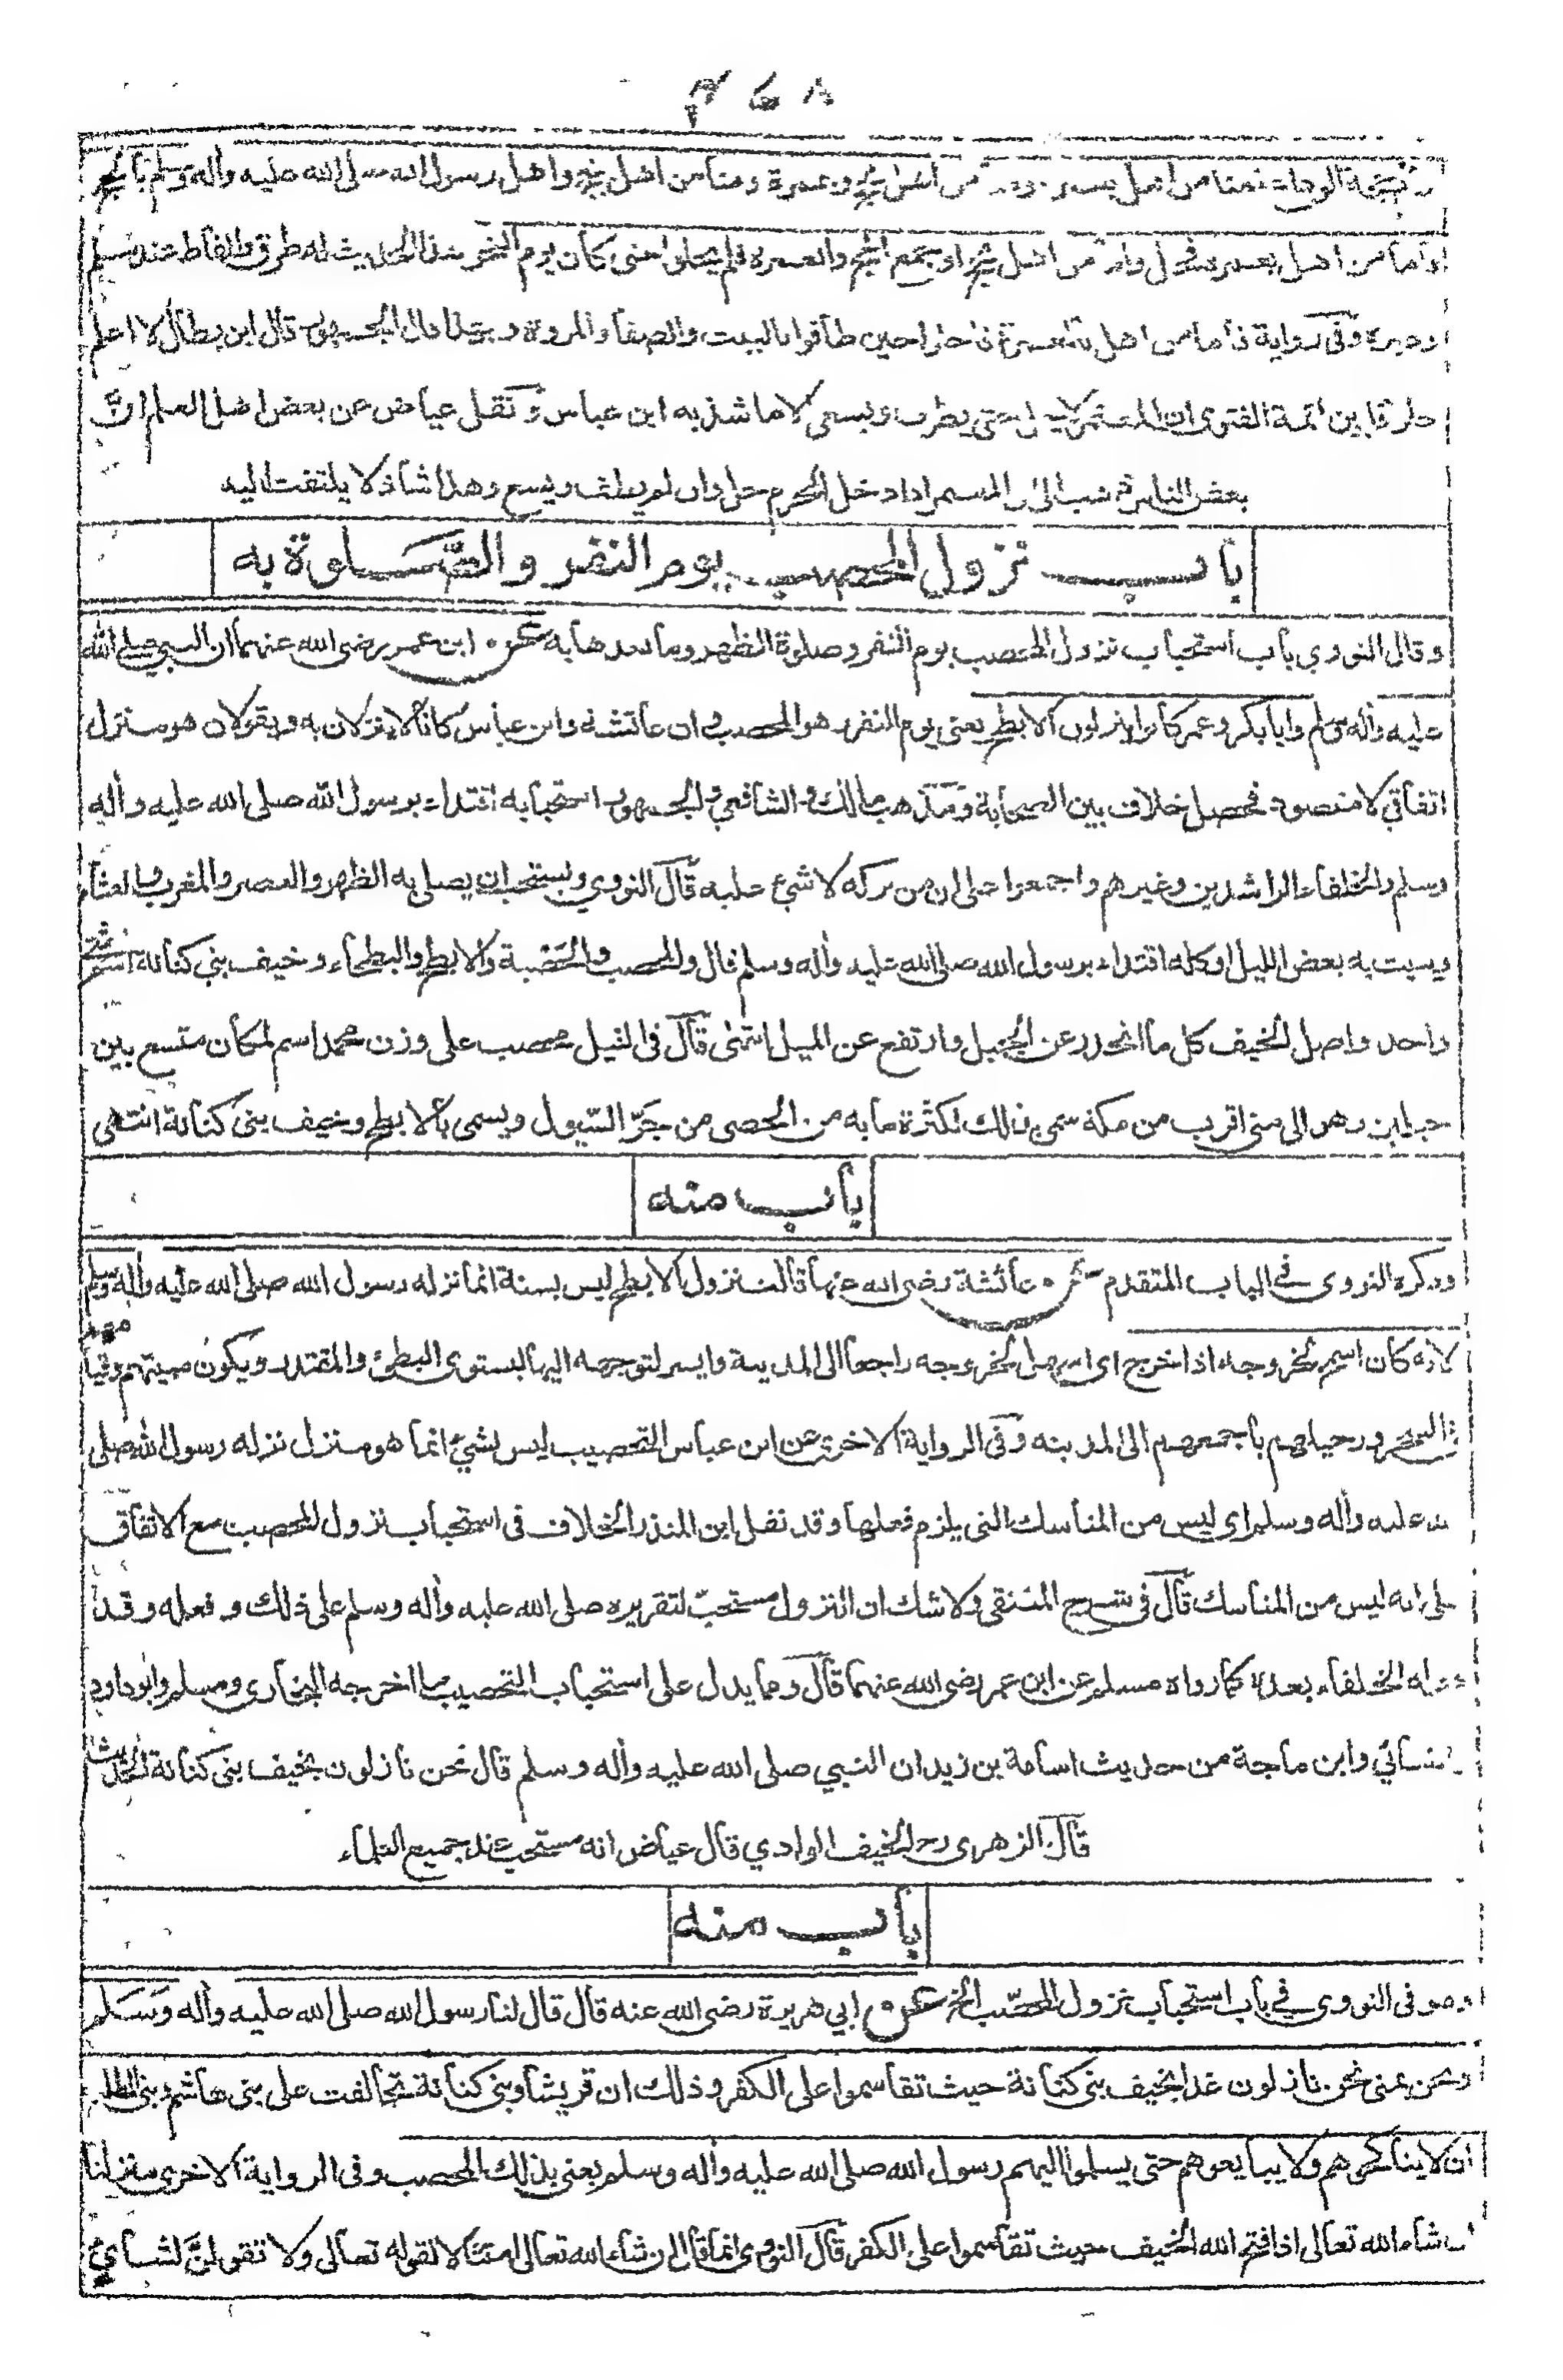 ٣٤٨
حجة الوداع فمنا من اهل بعمرة ومنا من اهل بحج وعمرة ومنا من اهل بحج واهل رسول الله صلى الله عليه وأله وسلم بالحج
فأما من اهل بعمرة فحل وأما من اهل بحج او جمع الحج والعمرة فلم يحلوا حتى كان يوم النحر هذا الحديث له طرق والفاظ عند مسلم
وغيره وفى رواية فأما من اهل بالعمرة فاحلوا حين طافوا بالبيت والصفا والمروة وبه قال الجمهور قال ابن بطال لا اعلم
خلافا بين ائمة الفتوى ان المعتمر لا يحل حتى يطوف ويسعى الا ما شذ به ابن عباس ونقل عياض عن بعض اهل العلم ان
بعض الناس ذهب الى ان المعتمر اذا دخل الحرم حل وان لم يطف ويسع وهذا شاذ لا يلتفت اليه
باب نزول المحصب يوم النفر والصَّلوة به
وقال النووي باب استحباب نزول المحصب يوم النفر وصلوة الظهر وما بعدها به عن ابن عمر رضى الله عنهما ان النبي صلى الله
عليه وأله وسلم وابا بكر وعمر كانوا ينزلون الابطح يعنى يوم النفر وهو المحصب وان عائشة وابن عباس كانا لا ينزلان به ويقولان هو منزل
اتفاقي لا مقصود فحصل خلاف بين الصحابة ومذهب مالك والشافعي والجمهور استحبابه اقتداء برسول الله صلى الله عليه وأله
وسلم والخلفاء الراشدين وغيرهم واجمعوا على ان من تركه لا شيئ عليه قال النووي ويستحب ان يصلي به الظهر والعصر والمغرب والعشاء
ويبيت به بعض الليل او كله اقتداء برسول الله صلى الله عليه وأله وسلم قال والمحصب والحَصْبة والابطح والبطحاء وخيف بني كنانة اسم لشيئ
واحد واصل الخيف كل ما انحدر عن الجبل وارتفع عن الميل انتهى قال فى النيل محصب على وزن محمد اسم لمكان متسع بين
جبلين وهو الى منى اقرب من مكة سمي بذلك لكثرة ما به من الحصى من جَرِّ السّيول ويسمى بالابطح وخيف بنى كنانة انتهى
باب منه
وذكره النووى في الباب المتقدم عن عائشة رضى الله عنها قالت نزول الابطح ليس بسنة انما نزله رسول الله صلى الله عليه وأله وسلم
لانه كان اسمح لخروجه اذا خرج اى اسهل لخروجه راجعا الى المدينة وايسر لتوجهه اليها ليستوى البطئ والمقتدر ويكون مبيتهم وقيامهم
فى السحر ورحيلهم بأجمعهم الى المدينه وفى الرواية الاخرى عن ابن عباس التحصيب ليس بشيئ انما هو منزل نزله رسول الله صلى
الله عليه وأله وسلم اى ليس من المناسك التى يلزم فعلها وقد نقل ابن المنذر الخلاف فى استحباب نزول المحصب مع الاتفاق
على انه ليس من المناسك قال فى شرح المنتقى ولا شك ان النزول مستحبّ لتقريره صلى الله عليه وأله وسلم على ذلك وفعله وقد
فعله الخلفاء بعده كما رواه مسلم عن ابن عمر رضى الله عنهما قال ومما يدل على استحباب التحصيب ما اخرجه البخارى ومسلم وابو داود
والنسائي وابن ماجة من حديث اسامة بن زيد ان النبي صلى الله عليه وأله وسلم قال نحن نازلون بخيف بنى كنانة الحديث
قال الزهرى رح الخيف الوادي قال عياض انه مستحب عند جميع العلماء
باب منه
وهو فى النووى في باب استحباب نزول المحصّب الخ عن ابي هريرة رضى الله عنه قال قال لنا رسول الله صلى الله عليه وأله وَسَلم
ونحن بمنى نحن نازلون غدا بخيف بنى كنانة حيث تقاسموا على الكفر وذلك ان قريشا وبنى كنانة تحالفت على بنى هاشم وبنى المطلب
ان لا يناكحوهم ولا يبايعوهم حتى يسلموا اليهم رسول الله صلى الله عليه وأله وسلم يعنى بذلك المحصب وفى الرواية الاخرى منزلنا
ان شاء الله تعالى اذا فتح الله الخيف حيث تقاسموا على الكفر قال النووى انما قال ان شاء الله تعالى امتثالا لقوله تعالى ولا تقولنَّ لشايئ